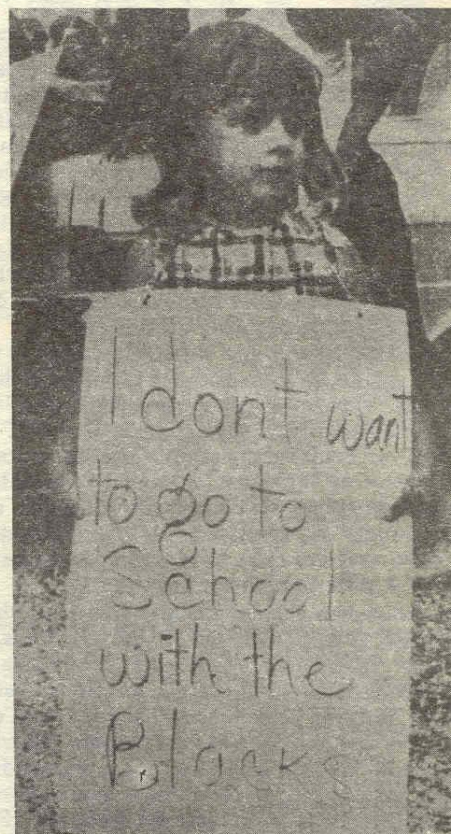 I dont want
to go to
School
with the
Blacks